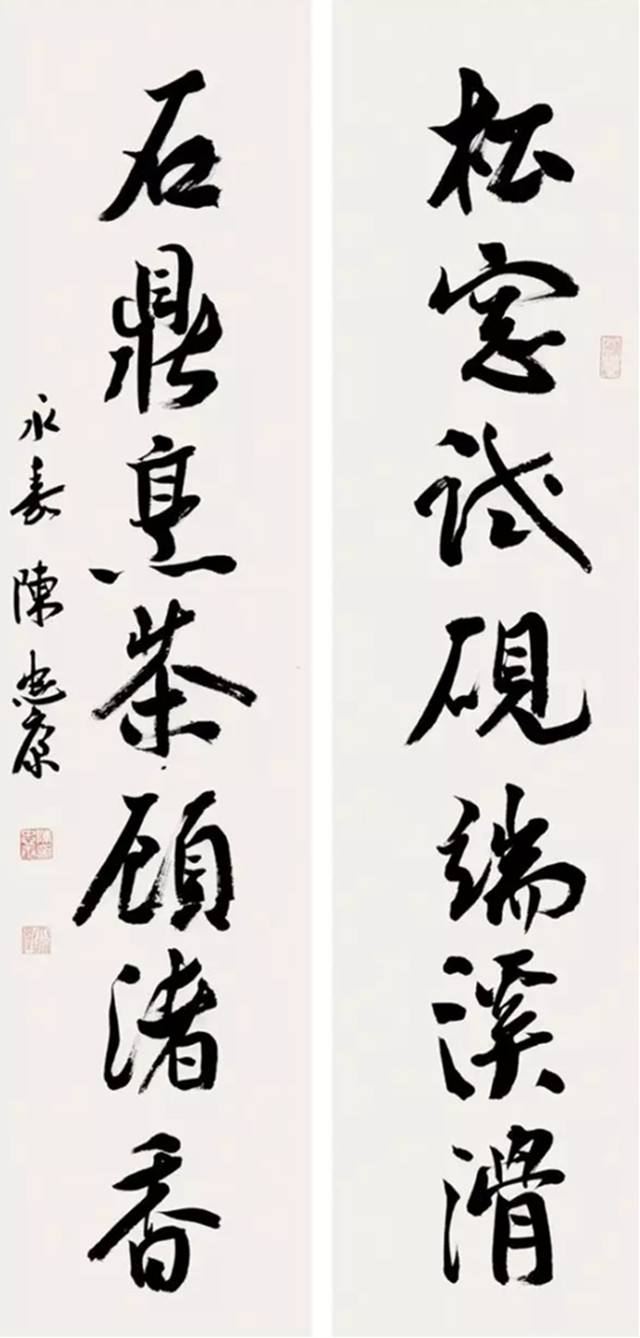 松窓试砚端溪滑
石鼎烹茶顾渚香
永嘉陳忠康